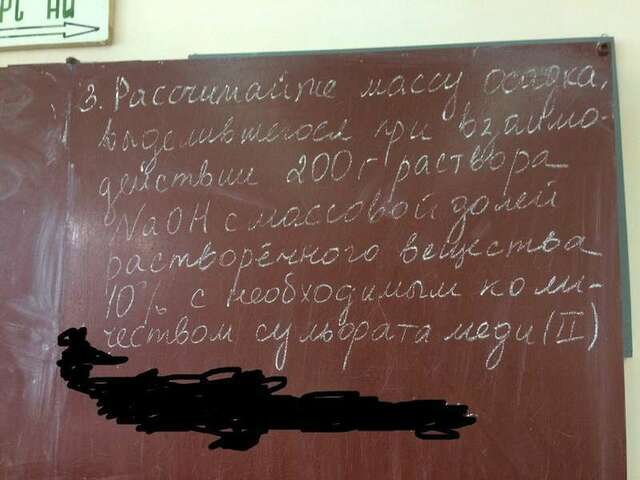 3. Рассчитайте массу осадка,
выделившегося при взаимо-
действии 200 г раствора
NaOH с массовой долей
растворённого вещества
10% с необходимым коли-
чеством сульфата меди (II)